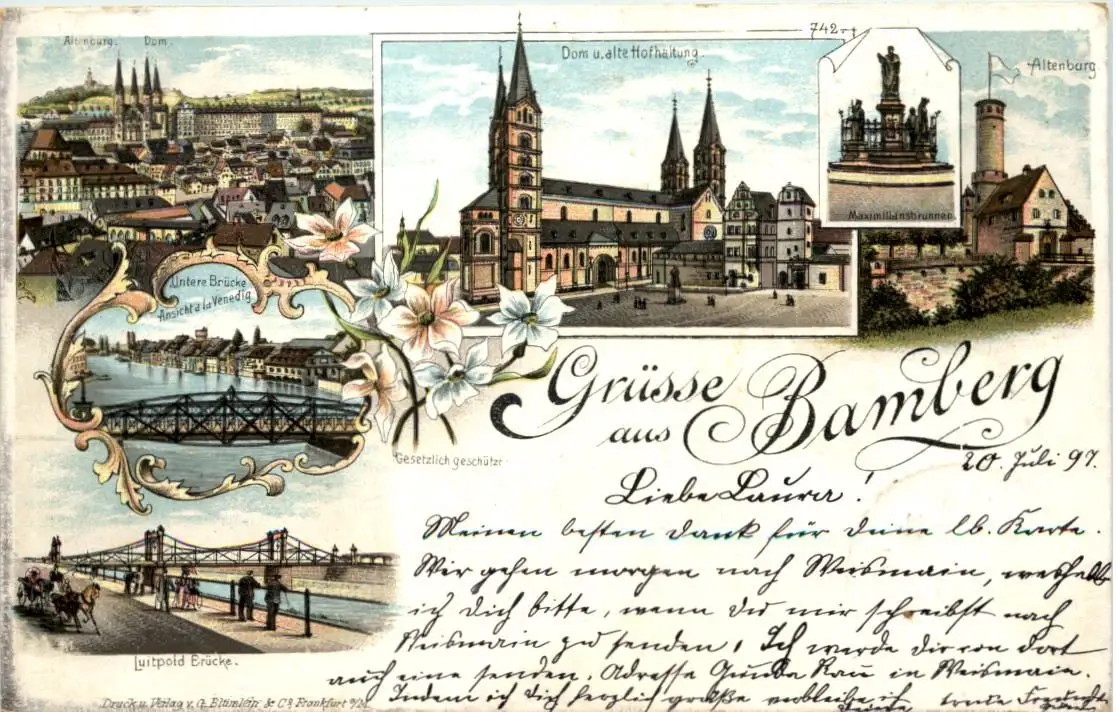 Altenburg. Dom.
Dom u. alte Hofhaltung.
742
Altenburg
Maximiliansbrunnen
Untere Brücke
Ansicht à la Venedig
Gesetzlich geschützt
Grüsse
aus Bamberg
20. Juli 97.
Liebe Laura!
Meinen besten Dank für Deine lb. Karte.
Wir gehen morgen nach Weismain, weshalb
ich Dich bitte, wenn Du mir schreibst nach
Weismain zu senden, Ich werde Dir von dort
auch eine senden. Adresse Gunda Rau in Weismain.
Indem ich Dich herzlich grüße verbleibe ich
Luitpold Brücke.
Druck u. Verlag v. G. Blümlein & Co. Frankfurt a/M.